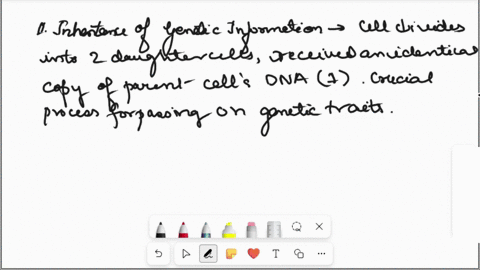 1. Inheritence of Genetic Information → Cell divides
into 2 daughter cells, received an identical
copy of parent-cell's DNA (1). Crucial
process for passing on genetic traits.